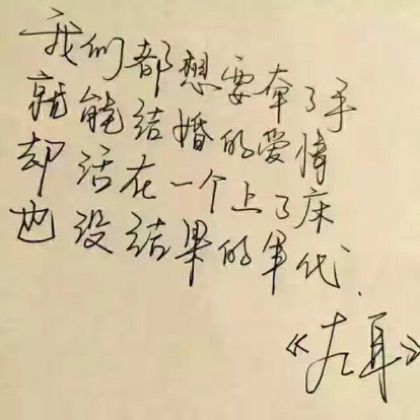 我们都想要牵了手
就能结婚的爱情
却活在一个上了床
也没结果的年代.
《左耳》